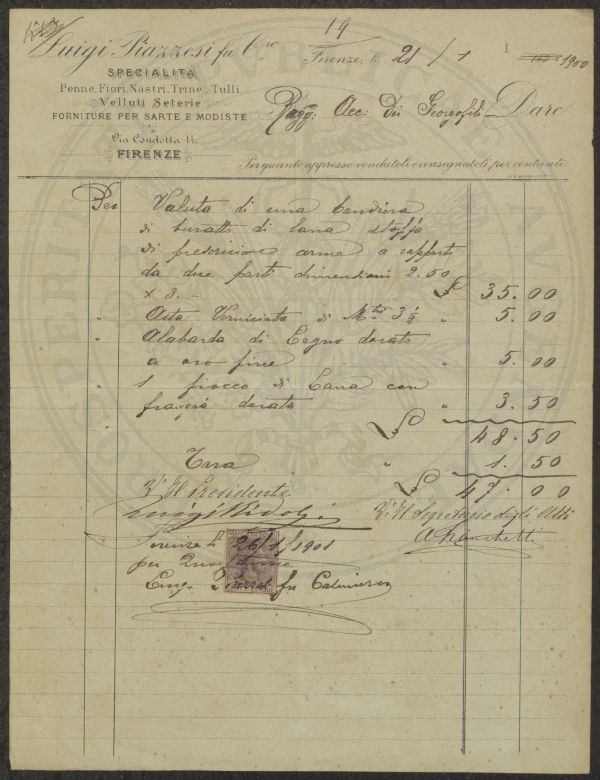 19
Luigi Piazzesi fu C.ro
Firenze, li 21 / 1 1900
SPECIALITÀ
Penne, Fiori, Nastri, Trine, Tulli
Velluti Seterie
FORNITURE PER SARTE E MODISTE
Via Condotta 14
FIRENZE
Acc: Dei Georgofili Dare
Per quanto appresso vendutoli e consegnatoli, per contanti
Per Valuta di una bandiera
di buratto di lana stoffa
di prescrizione arme a rapporti
da due parti dimensioni 2.50
x 3. - 35.00
" Asta Verniciata di Mtri 3 1/2 " 5.00
" Alabarda di Legno dorato
a oro fine " 5.00
" 1 fiocco di Lana con
frangia dorata " 3.50
48.50
Tara " 1.50
47.00
V° Il Presidente
Luigi Ridolfi
V° Il Segretario degli Atti
Firenze li 26/1/1901
per
fu
PROSPERITATI
PUBLICAE